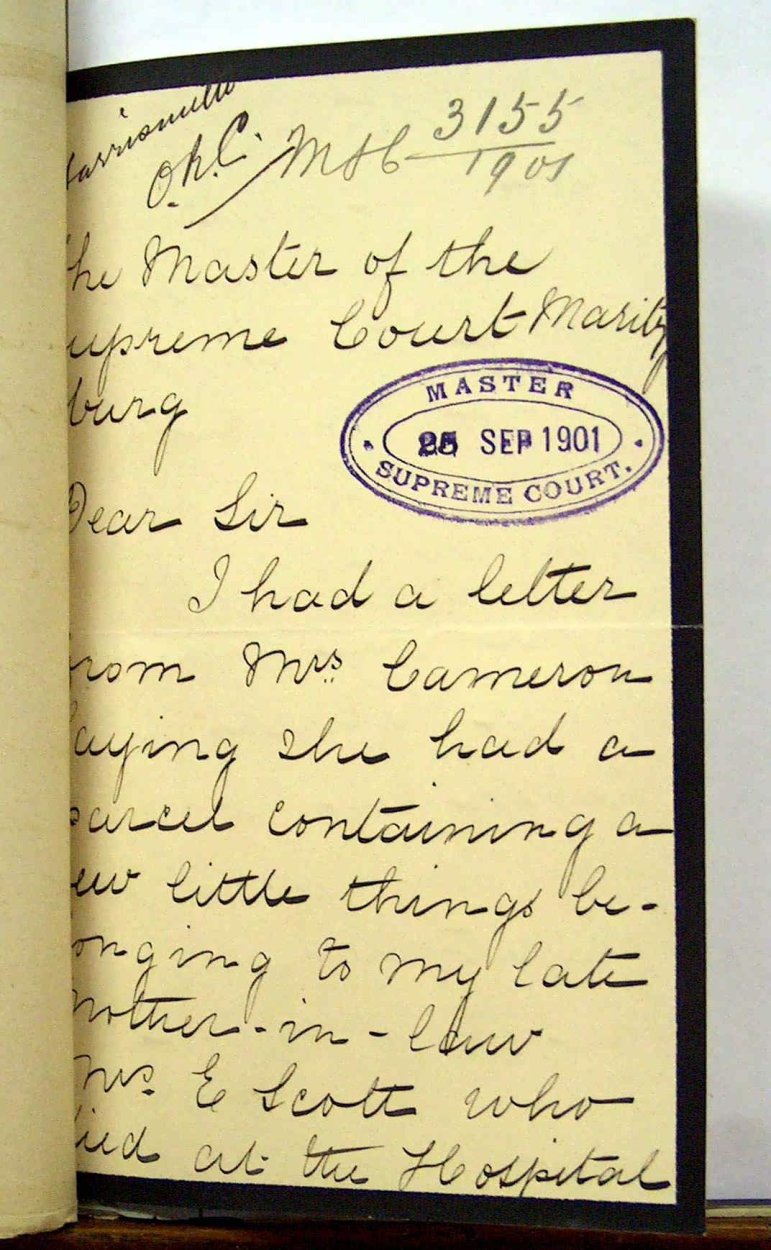 arrismith
O.R.C. MSC 3155
1901
he Master of the
upreme Court Maritz
burg
MASTER
25 SEP 1901
SUPREME COURT.
Dear Sir
I had a letter
from Mrs. Cameron
saying she had a
parcel containing a
ew little things be-
onging to my late
mother-in-law
Mrs. E Scott who
died at the Hospital